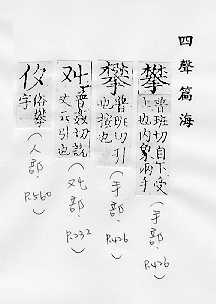 四聲篇海
攀 普班切自下受上也 (手部. P.426)
攀 普班切引也 (手部. P.426)
普姦切說文云引也 ( 部. P.232)
俗攀字 (人部. P.560)